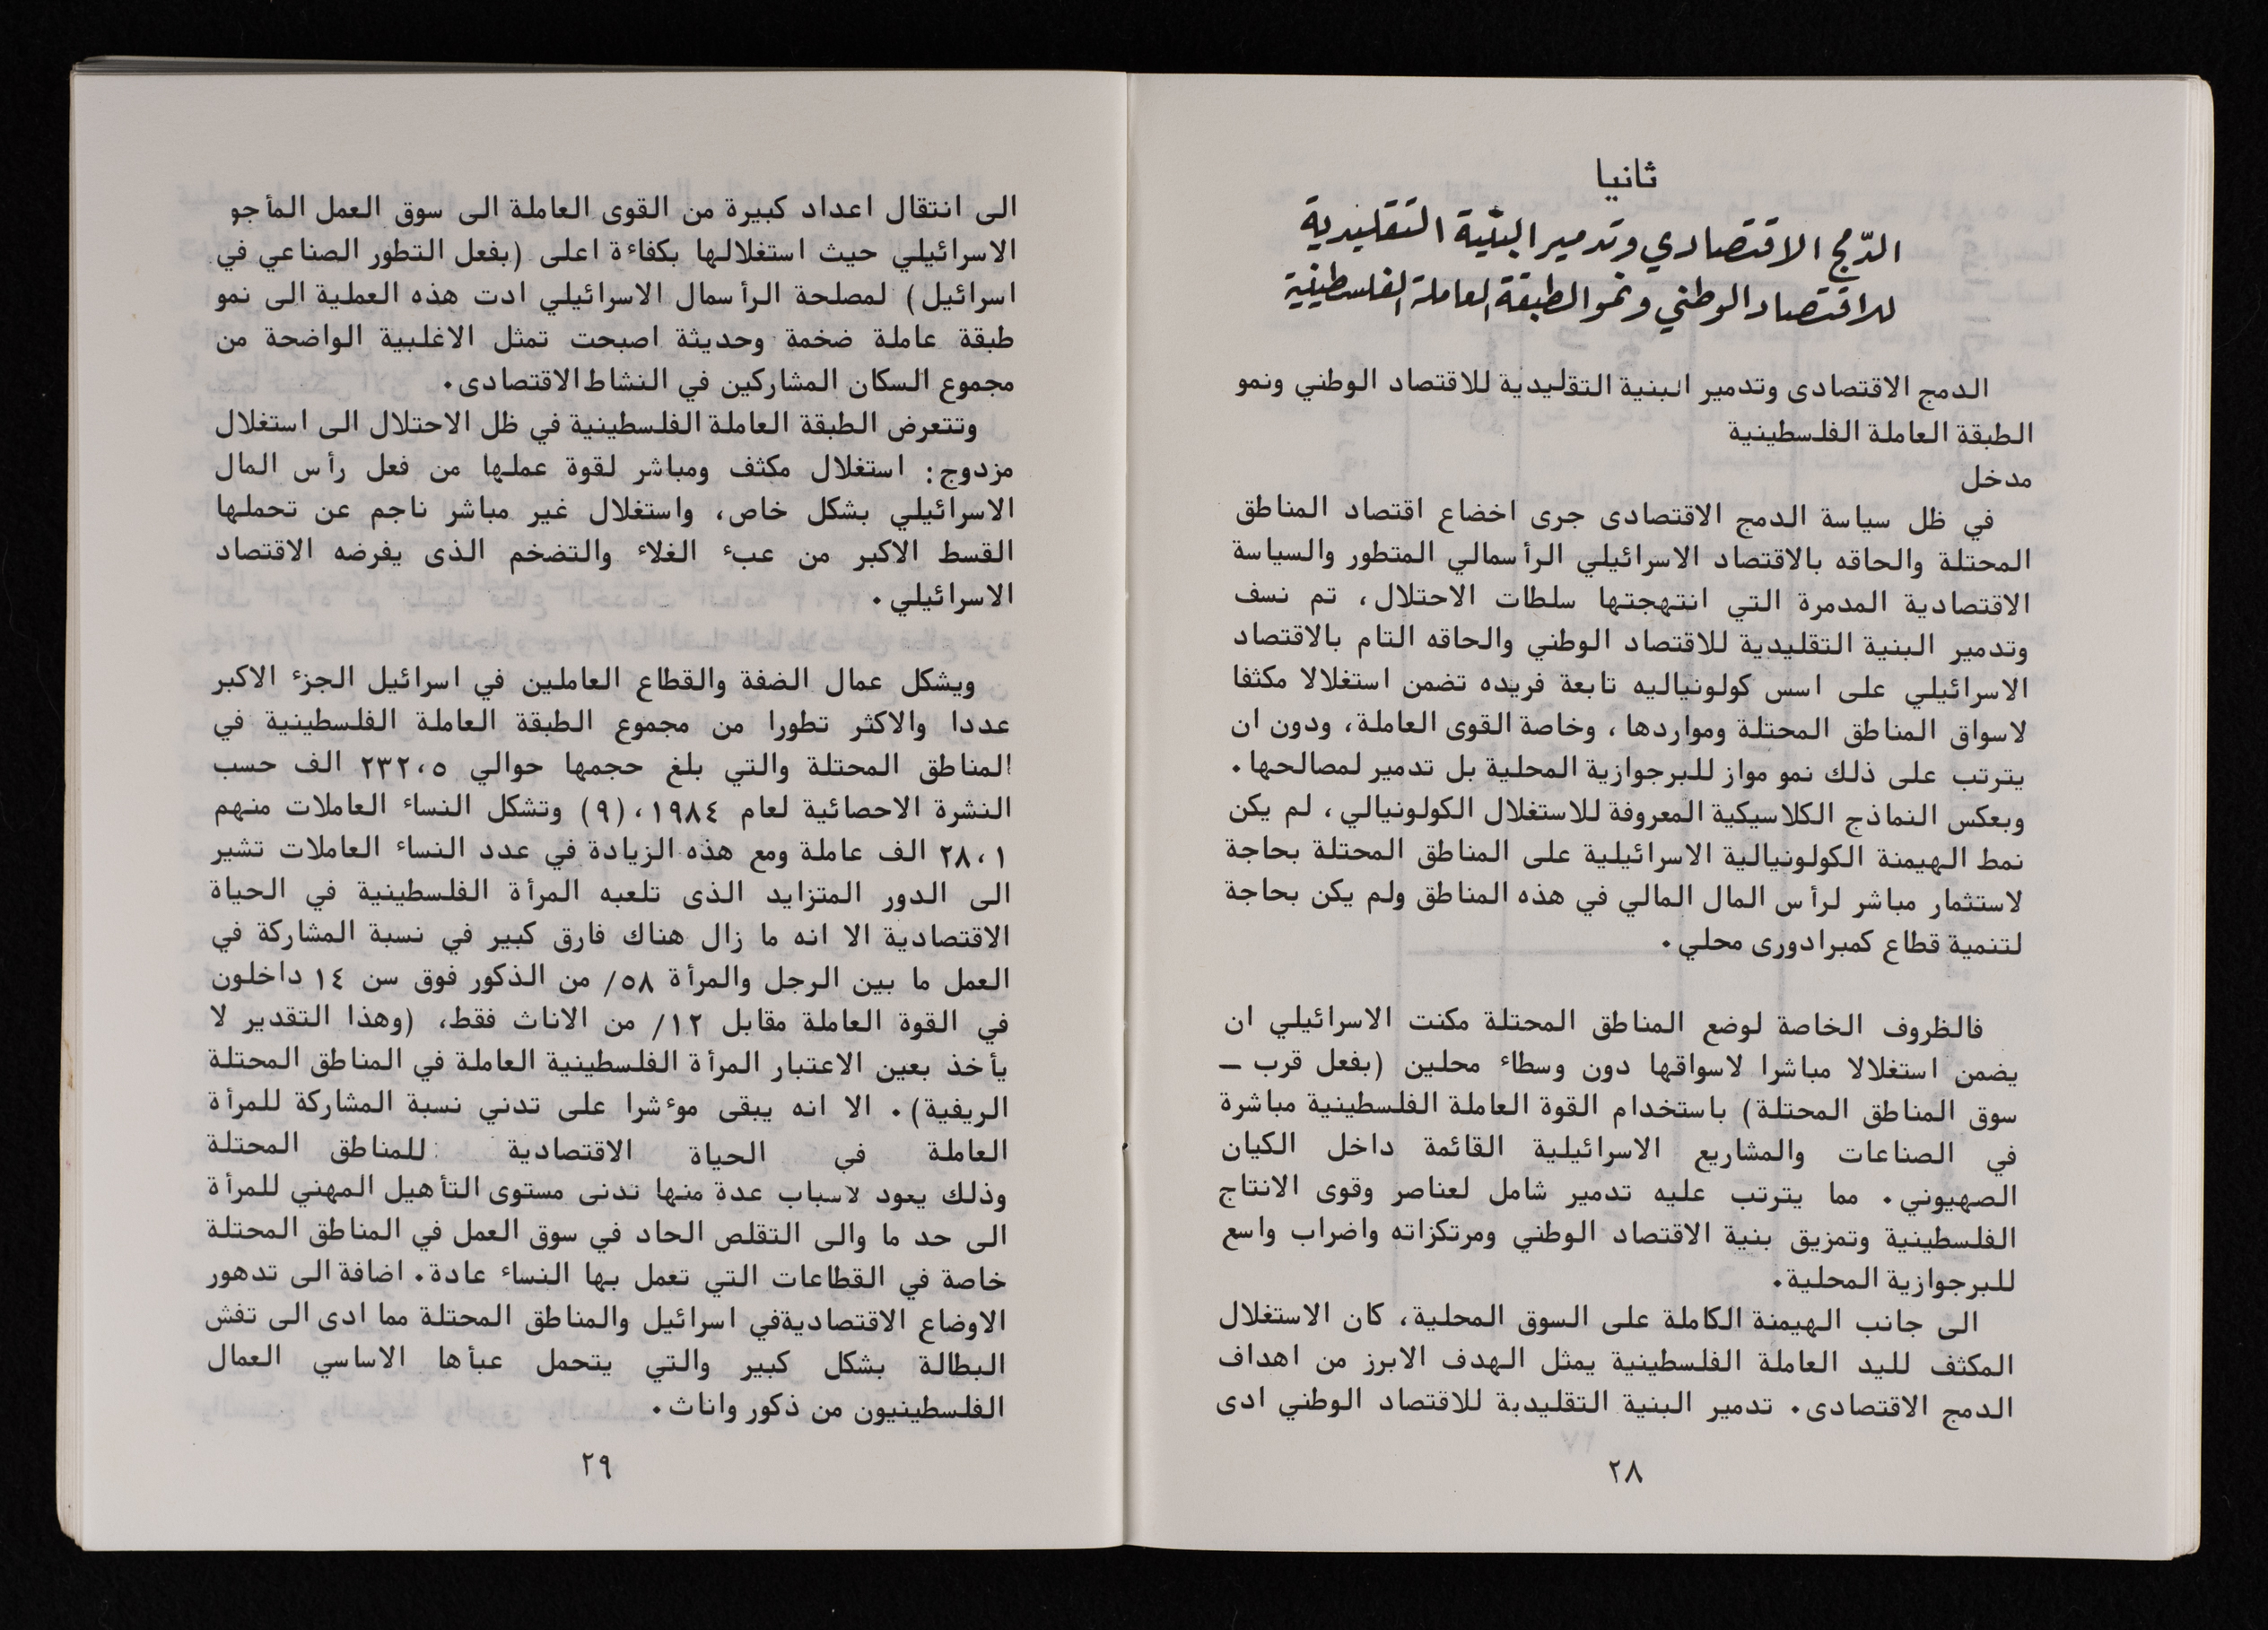 ثانيا
الدّمج الاقتصادي وتدمير البنية التقليدية
للاقتصاد الوطني ونمو الطبقة العاملة الفلسطينية
الدمج الاقتصادى وتدمير البنية التقليدية للاقتصاد الوطني ونمو
الطبقة العاملة الفلسطينية
مدخل
في ظل سياسة الدمج الاقتصادى جرى اخضاع اقتصاد المناطق
المحتلة والحاقه بالاقتصاد الاسرائيلي الرأسمالي المتطور والسياسة
الاقتصادية المدمرة التي انتهجتها سلطات الاحتلال، تم نسف
وتدمير البنية التقليدية للاقتصاد الوطني والحاقه التام بالاقتصاد
الاسرائيلي على اسس كولونياليه تابعة فريده تضمن استغلالا مكثفا
لاسواق المناطق المحتلة ومواردها، وخاصة القوى العاملة، ودون ان
يترتب على ذلك نمو مواز للبرجوازية المحلية بل تدمير لمصالحها.
وبعكس النماذج الكلاسيكية المعروفة للاستغلال الكولونيالي، لم يكن
نمط الهيمنة الكولونيالية الاسرائيلية على المناطق المحتلة بحاجة
لاستثمار مباشر لرأس المال المالي في هذه المناطق ولم يكن بحاجة
لتنمية قطاع كمبرادورى محلي.
فالظروف الخاصة لوضع المناطق المحتلة مكنت الاسرائيلي ان
يضمن استغلالا مباشرا لاسواقها دون وسطاء محلين (بفعل قرب ـ
سوق المناطق المحتلة) باستخدام القوة العاملة الفلسطينية مباشرة
في الصناعات والمشاريع الاسرائيلية القائمة داخل الكيان
الصهيوني. مما يترتب عليه تدمير شامل لعناصر وقوى الانتاج
الفلسطينية وتمزيق بنية الاقتصاد الوطني ومرتكزاته واضراب واسع
للبرجوازية المحلية.
الى جانب الهيمنة الكاملة على السوق المحلية، كان الاستغلال
المكثف لليد العاملة الفلسطينية يمثل الهدف الابرز من اهداف
الدمج الاقتصادى. تدمير البنية التقليدية للاقتصاد الوطني ادى
٢٨
الى انتقال اعداد كبيرة من القوى العاملة الى سوق العمل المأجو
الاسرائيلي حيث استغلالها بكفاءة اعلى (بفعل التطور الصناعي في
اسرائيل) لمصلحة الرأسمال الاسرائيلي ادت هذه العملية الى نمو
طبقة عاملة ضخمة وحديثة اصبحت تمثل الاغلبية الواضحة من
مجموع السكان المشاركين في النشاط الاقتصادى.
وتتعرض الطبقة العاملة الفلسطينية في ظل الاحتلال الى استغلال
مزدوج: استغلال مكثف ومباشر لقوة عملها من فعل رأس المال
الاسرائيلي بشكل خاص، واستغلال غير مباشر ناجم عن تحملها
القسط الاكبر من عبء الغلاء والتضخم الذى يفرضه الاقتصاد
الاسرائيلي.
ويشكل عمال الضفة والقطاع العاملين في اسرائيل الجزء الاكبر
عددا والاكثر تطورا من مجموع الطبقة العاملة الفلسطينية في
المناطق المحتلة والتي بلغ حجمها حوالي ٢٣٢،٥ الف حسب
النشرة الاحصائية لعام ١٩٨٤، (٩) وتشكل النساء العاملات منهم
٢٨،١ الف عاملة ومع هذه الزيادة في عدد النساء العاملات تشير
الى الدور المتزايد الذى تلعبه المرأة الفلسطينية في الحياة
الاقتصادية الا انه ما زال هناك فارق كبير في نسبة المشاركة في
العمل ما بين الرجل والمرأة ٥٨/ من الذكور فوق سن ١٤ داخلون
في القوة العاملة مقابل ١٢/ من الاناث فقط، (وهذا التقدير لا
يأخذ بعين الاعتبار المرأة الفلسطينية العاملة في المناطق المحتلة
الريفية). الا انه يبقى موءشرا على تدني نسبة المشاركة للمرأة
العاملة في الحياة الاقتصادية للمناطق المحتلة
وذلك يعود لاسباب عدة منها تدنى مستوى التأهيل المهني للمرأة
الى حد ما والى التقلص الحاد في سوق العمل في المناطق المحتلة
خاصة في القطاعات التي تعمل بها النساء عادة. اضافة الى تدهور
الاوضاع الاقتصاديةفي اسرائيل والمناطق المحتلة مما ادى الى تفش
البطالة بشكل كبير والتي يتحمل عبأها الاساسي العمال
الفلسطينيون من ذكور واناث.
٢٩